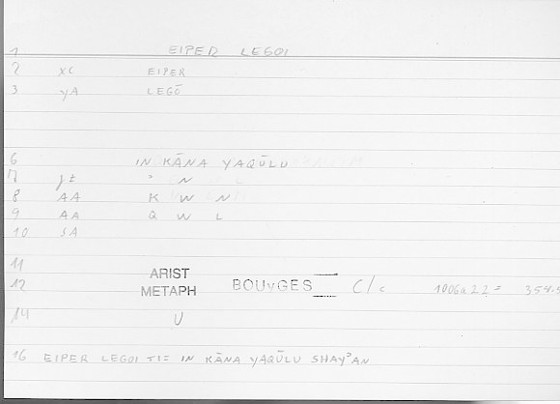 1 EIPER LEGOI
2 XC EIPER
3 YA LEGŌ
6 IN KĀNA YAQŪLU
7 ʾ N
8 AA K W N
9 AA Q W L
10 SA
11
ARIST
12 METAPH BOUvGES C/c 1006a22=
14 U
16 EIPER LEGOI TI= IN KĀNA YAQŪLU SHAYʾAN